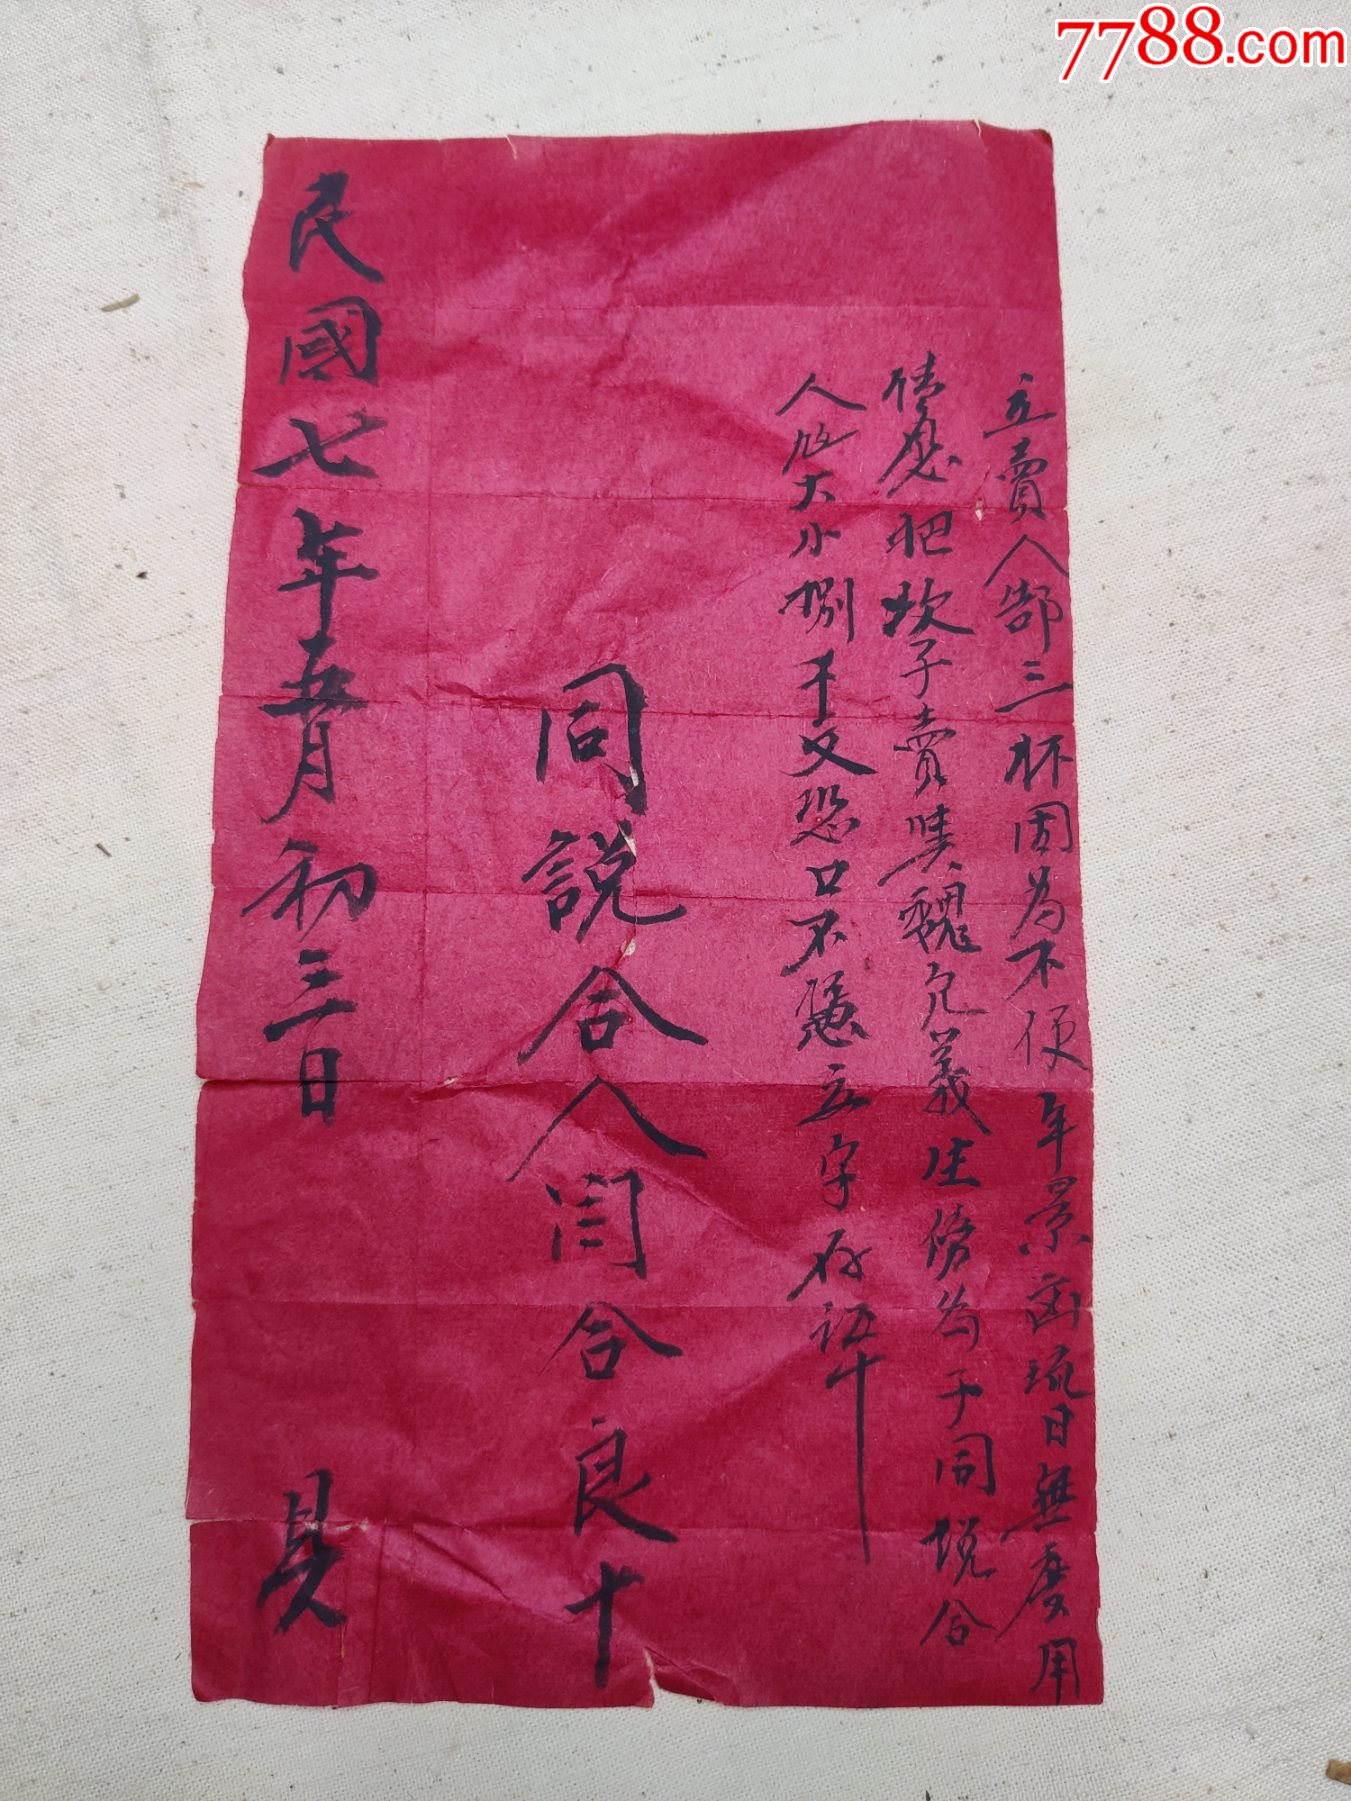 7788.com
立賣人郜三杯因為不便年景凶荒日無度用
情愿把坎子賣與魏允義生償為于同説合
人 大小捌千文恐口不憑立字存証十
同説合人閆合良十
民國七年五月初三日 具